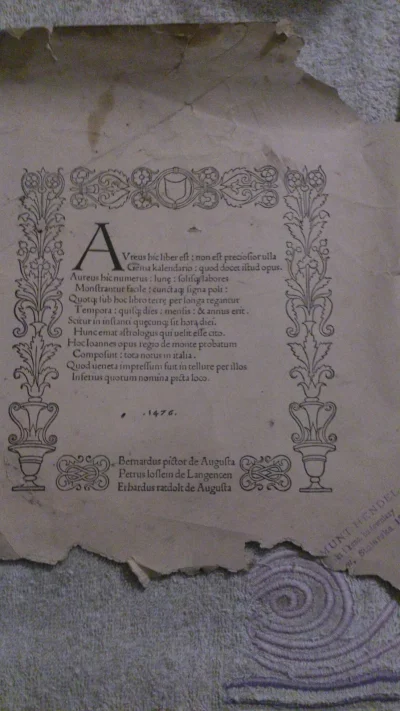 AVreus hic liber est: non est preciosior ulla
Gēma kalendario: quod docet istud opus.
Aureus hic numerus: lunę: solisq; labores
Monstrantur facile: cunctaq; signa poli:
Quotq; sub hoc libro terrę per longa regantur
Tempora: quisq; dies: mensis: & annus erit.
Scitur in instanti quęcunq; sit hora diei.
Hunc emat astrologus qui velit esse cito.
Hoc Ioannes opus regio de monte probatum
Composuit: tota notus in italia.
Quod veneta impressum fuit in tellure per illos
Inferius quorum nomina picta loco.
.1476.
Bernardus pictor de Augusta
Petrus loslein de Langencen
Erhardus ratdolt de Augusta
MUNT HENDEL